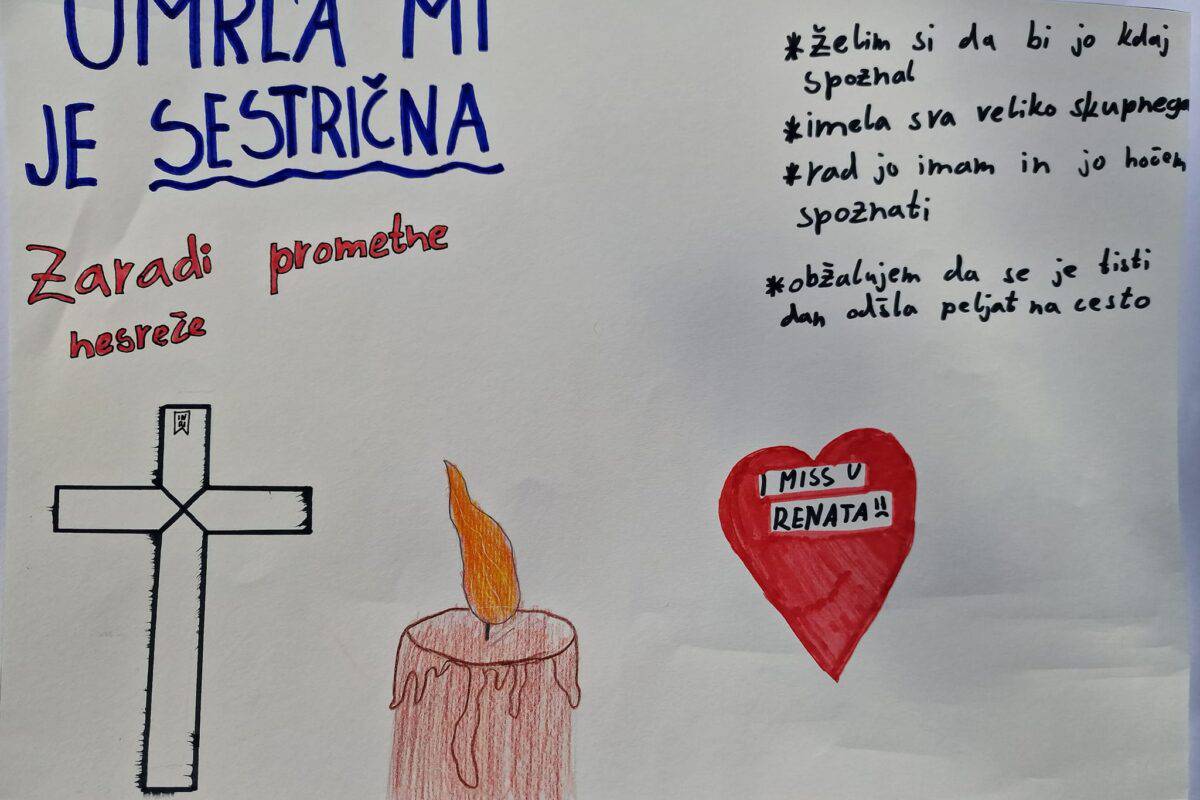 UMRLA MI
JE SESTRIČNA
Zaradi prometne
nesreče
*želim si da bi jo kdaj
spoznal
*imela sva veliko skupnega
*rad jo imam in jo hočem
spoznati
*obžalujem da se je tisti
dan odšla peljat na cesto
I MISS U
RENATA!!